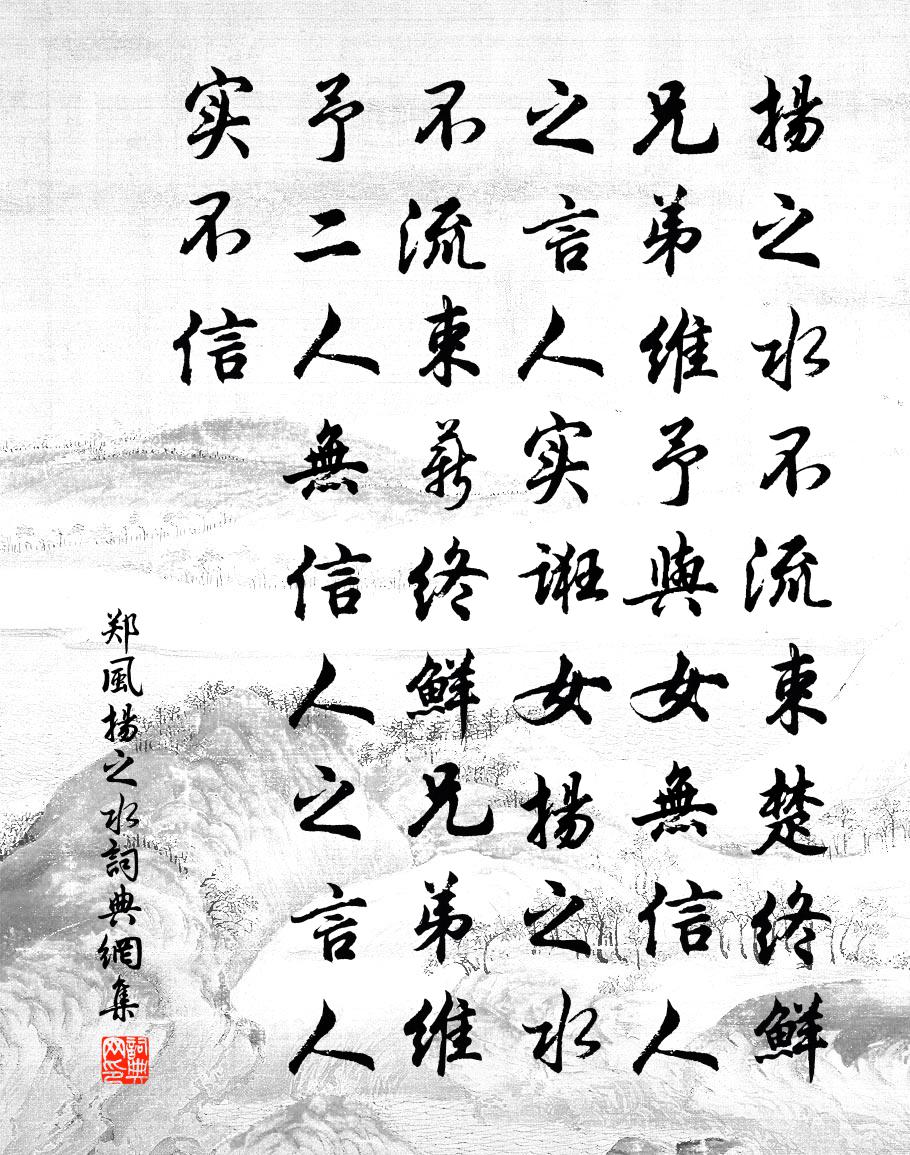 揚之水不流束楚终鮮
兄弟維予與女無信人
之言人实誑女揚之水
不流束薪终鮮兄弟維
予二人無信人之言人
实不信
郑風揚之水詞典網集
詞典网印